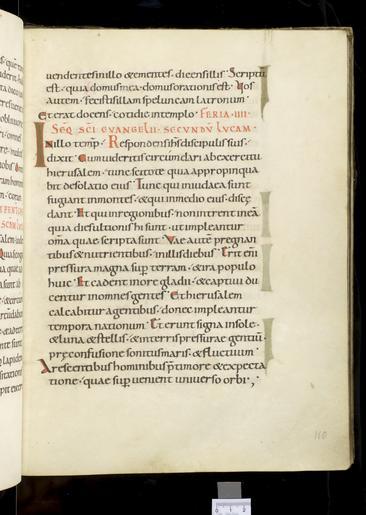 uendentes in illo & ementes. dicens illis Scriptū
est. quia domus mea domus orationis est. Vos
autem. fecistis illam speluncam latronum
Et erat docens. cotidie in templo. FERIA. IIII.
SEQ SCI EVANGELII. SECVNDV LVCAM.
In illo temp̄. Respondens ihs discipulis suis.
dixit. Cum uideritis circumdari ab exercitu
hierusalem. tunc scitote quia appropinqua
bit desolatio eius Tunc qui in iudaea sunt
fugiant in montes. & qui in medio eius. disce
dant. Et qui in regionibus. non intrent in eā
quia dies ultionis hi sunt. ut impleantur
om̄a quae scripta sunt. Vae autē pregnan
tibus & nutrientibus. in illis diebus. Erit eni
pressura magna sup terram. & ira populo
huic. Et cadent in ore gladii. & captiui du
centur in omnes gentes. Et hierusalem
calcabitur a gentibus. donec impleantur
tempora nationum. Et erunt signa in sole.
& luna & stellis. & in terris pressurae gentiū.
prę confusione sonitus maris. & fluctuum
Arescentibus hominibus p̄ timore & expecta
tione. quae superuenient uniuerso orbi;
160